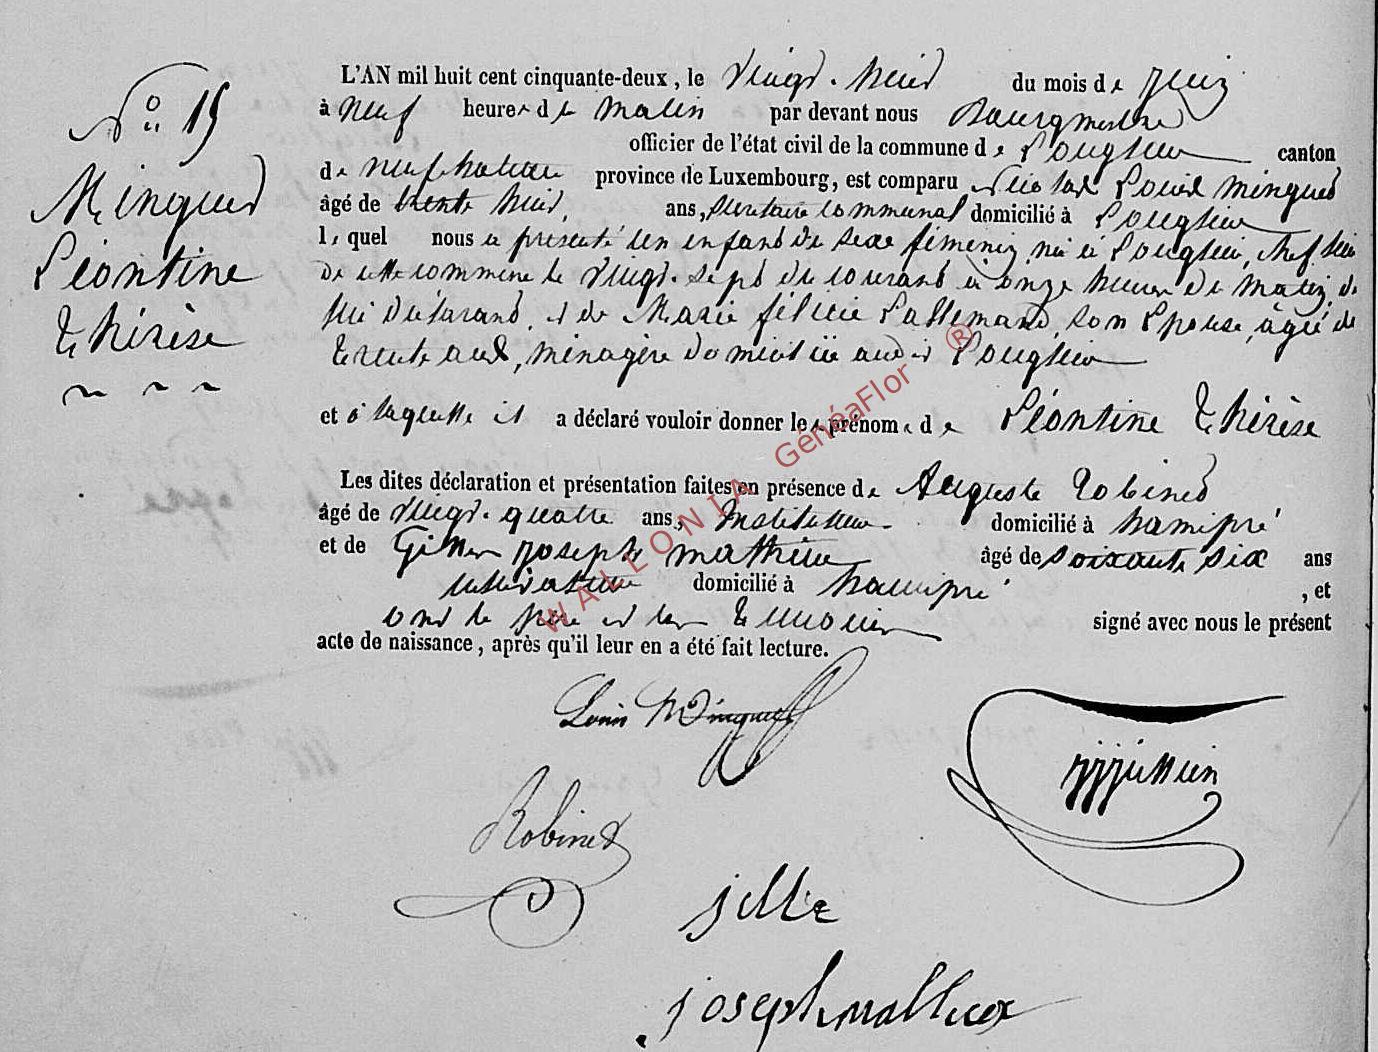 N° 15
Minguet
Léontine
Thérèse
L'AN mil huit cent cinquante-deux, le vingt-huit du mois de juin
à neuf heures du matin par devant nous Bourgmestre
officier de l'état civil de la commune de Longlier canton
de neufchateau province de Luxembourg, est comparu Nicolas Louis Minguet
âgé de trente huit ans, secretaire communal domicilié à Longlier
lequel nous a présenté un enfant du sexe féminin, né à Longlier, chef lieu
de cette commune le vingt-sept du courant à onze heures du matin, de
lui déclarant, et de Marie félicie Lallemand, son Epouse, âgée de
trente ans, ménagère domiciliée audit Longlier
et à laquelle il a déclaré vouloir donner les prénoms de Léontine Thérèse
Les dites déclaration et présentation faites en présence de Auguste Robinet
âgé de vingt-quatre ans, Instituteur domicilié à hamipré
et de Gilles joseph mathieu âgé de soixante six ans
cultivateur domicilié à hamipré, et
ont le père et les temoins signé avec nous le présent
acte de naissance, après qu'il leur en a été fait lecture.
Louis Minguet
Robinet
jille
joseph mathieux
WALLONIA GénéaFlor ®